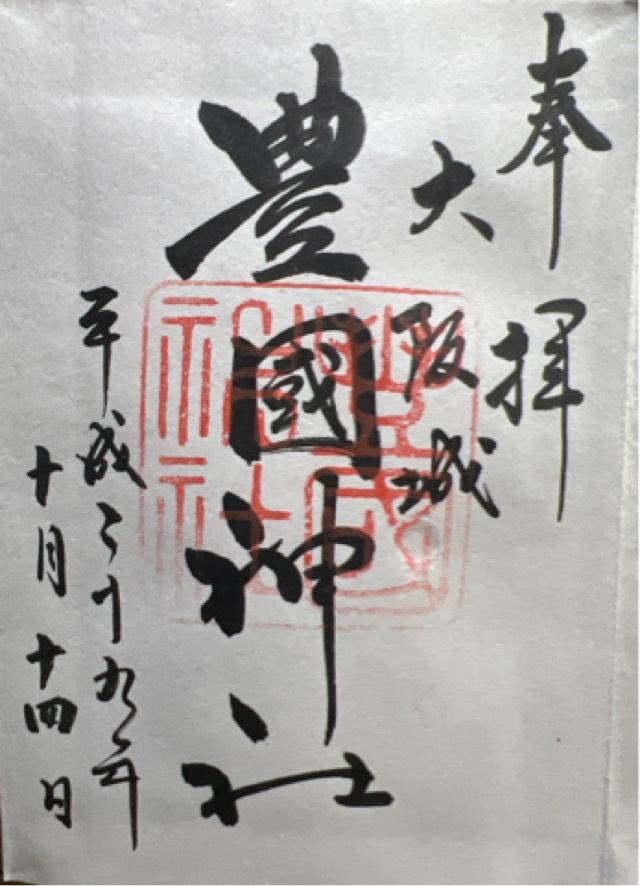 奉拝
大阪城
豊國神社
平成二十九年
十月十四日
豊國神社